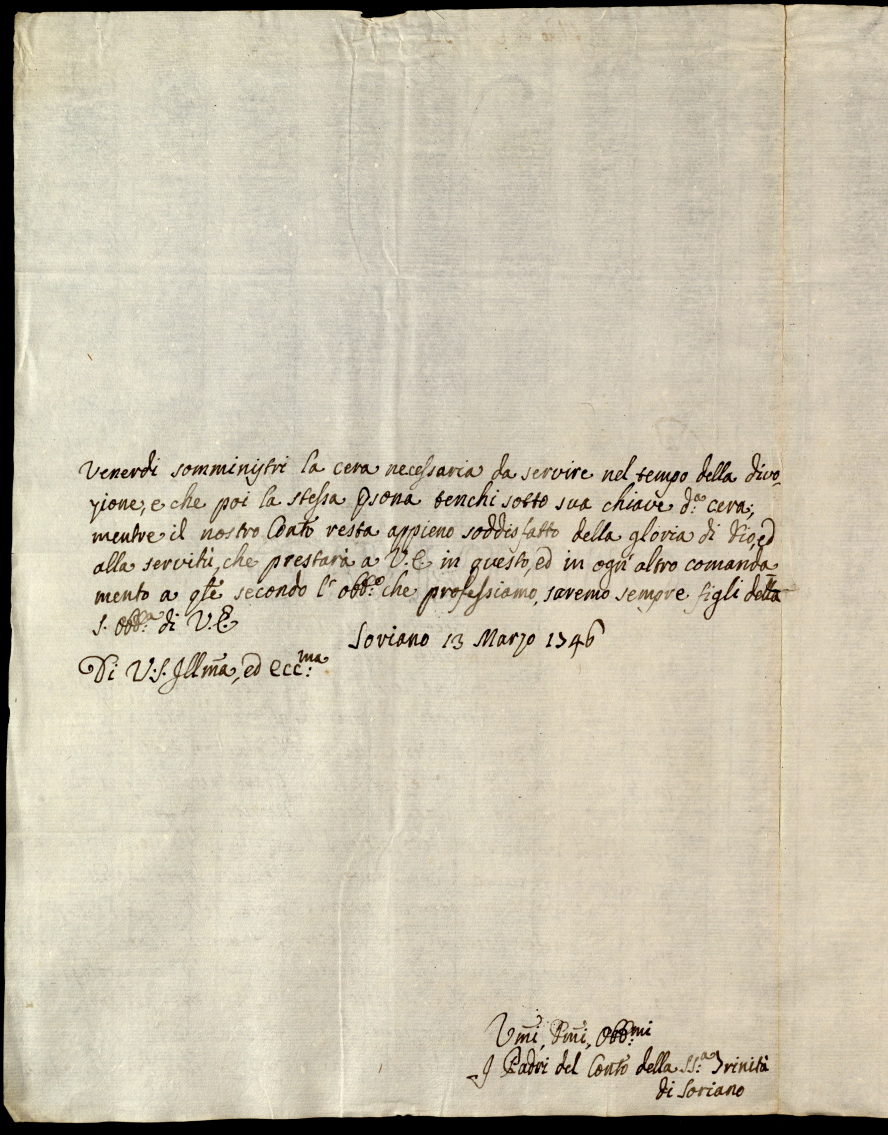 Venerdi somministri la cera necessaria da servire nel tempo della divo-
zione, e che poi la stessa Psona tenchi sotto sua chiave d.ª cera;
mentre il nostro Conto resta appieno soddisfatto della gloria di Dio, ed
alla servitù, che prestarà a V.E. in questo, ed in ogn'altro comanda
mento a qle secondo l'obb.º che professiamo, saremo sempre figli della
S. obb.ª di V.E.
Soriano 13 Marzo 1746
Di V.S. Illma, ed Ecc.ma
Umi, Dmi, Obb.mi
I Padri del Conto della SS.ª Trinità
di Soriano